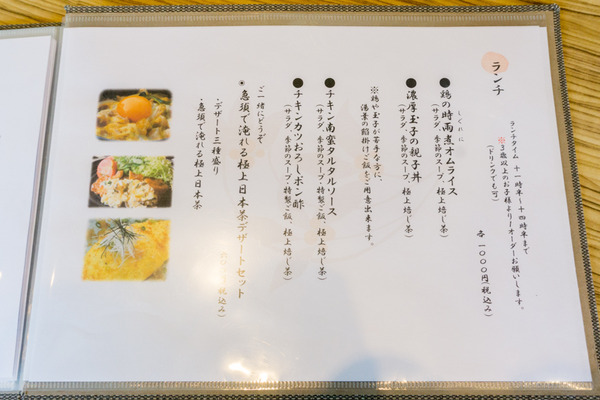 ランチ
ランチタイム 十一時半〜十四時半まで
※3歳以上のお子様より1オーダーお願いします。
(ドリンクでも可)
各 一〇〇〇円(税込み)
しぐれに
●鶏の時雨煮オムライス
(サラダ、季節のスープ、極上焙じ茶)
●濃厚玉子の親子丼
(サラダ、季節のスープ、極上焙じ茶)
※鶏や玉子が苦手な方に、
湯葉の餡掛けご飯をご用意出来ます。
●チキン南蛮タルタルソース
(サラダ、季節のスープ・特製ご飯、極上焙じ茶)
●チキンカツおろしポン酢
(サラダ、季節のスープ・特製ご飯、極上焙じ茶)
ご一緒にどうぞ
※急須で淹れる極上日本茶デザートセット
・デザート三種盛り
・急須で淹れる極上日本茶